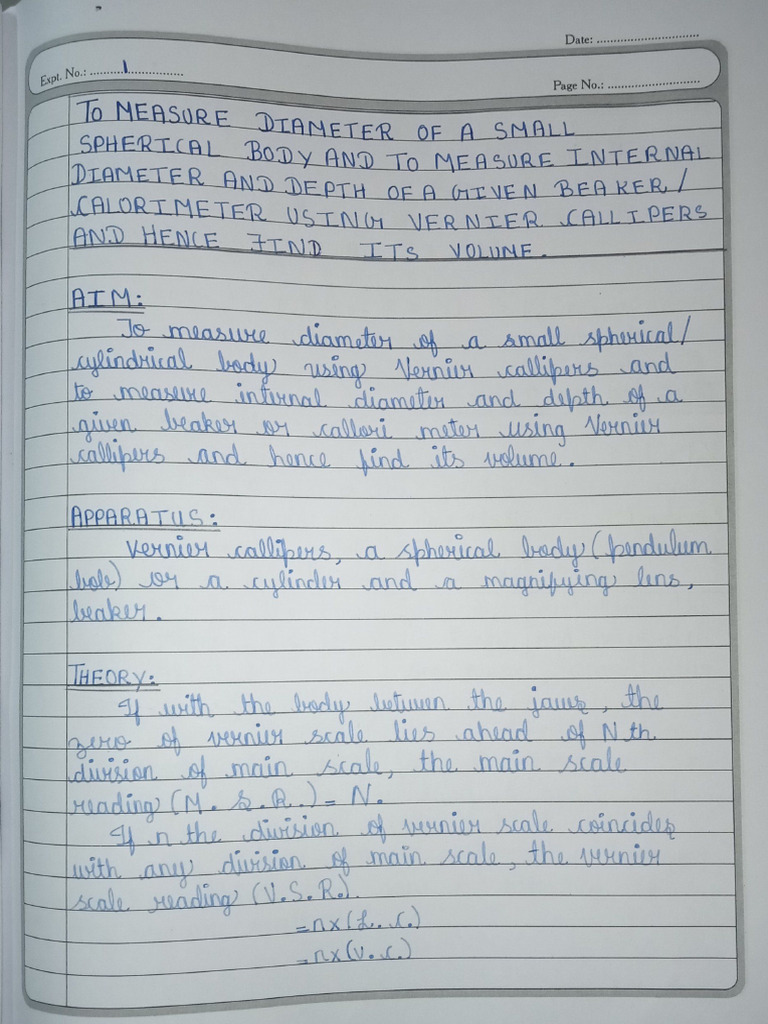 Date: ..............................
Expt. No.: ..........1................
Page No.: ...........................
TO MEASURE DIAMETER OF A SMALL
SPHERICAL BODY AND TO MEASURE INTERNAL
DIAMETER AND DEPTH OF A GIVEN BEAKER/
CALORIMETER USING VERNIER CALLIPERS
AND HENCE FIND ITS VOLUME.
AIM:
To measure diameter of a small spherical/
cylindrical body using Vernier callipers and
to measure internal diameter and depth of a
given beaker or callori meter using Vernier
callipers and hence find its volume.
APPARATUS:
Vernier callipers, a spherical body (pendulum
bob) or a cylinder and a magnifying lens,
beaker.
THEORY:
If with the body between the jaws, the
zero of vernier scale lies ahead of N th
division of main scale, the main scale
reading (M. S. R.) = N.
If n the division of vernier scale coincides
with any division of main scale, the vernier
scale reading (V.S.R.)
=n×(L. C.)
=n×(V. C.)